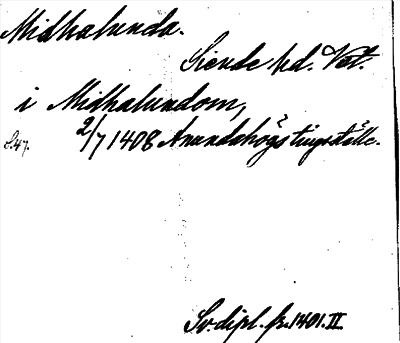 Midhalunda.
Siende hd. Vst.
i Midhalundom,
S.47. 2/7 1408 Anundahögs tingställe.
Sv. dipl. fr. 1401. II